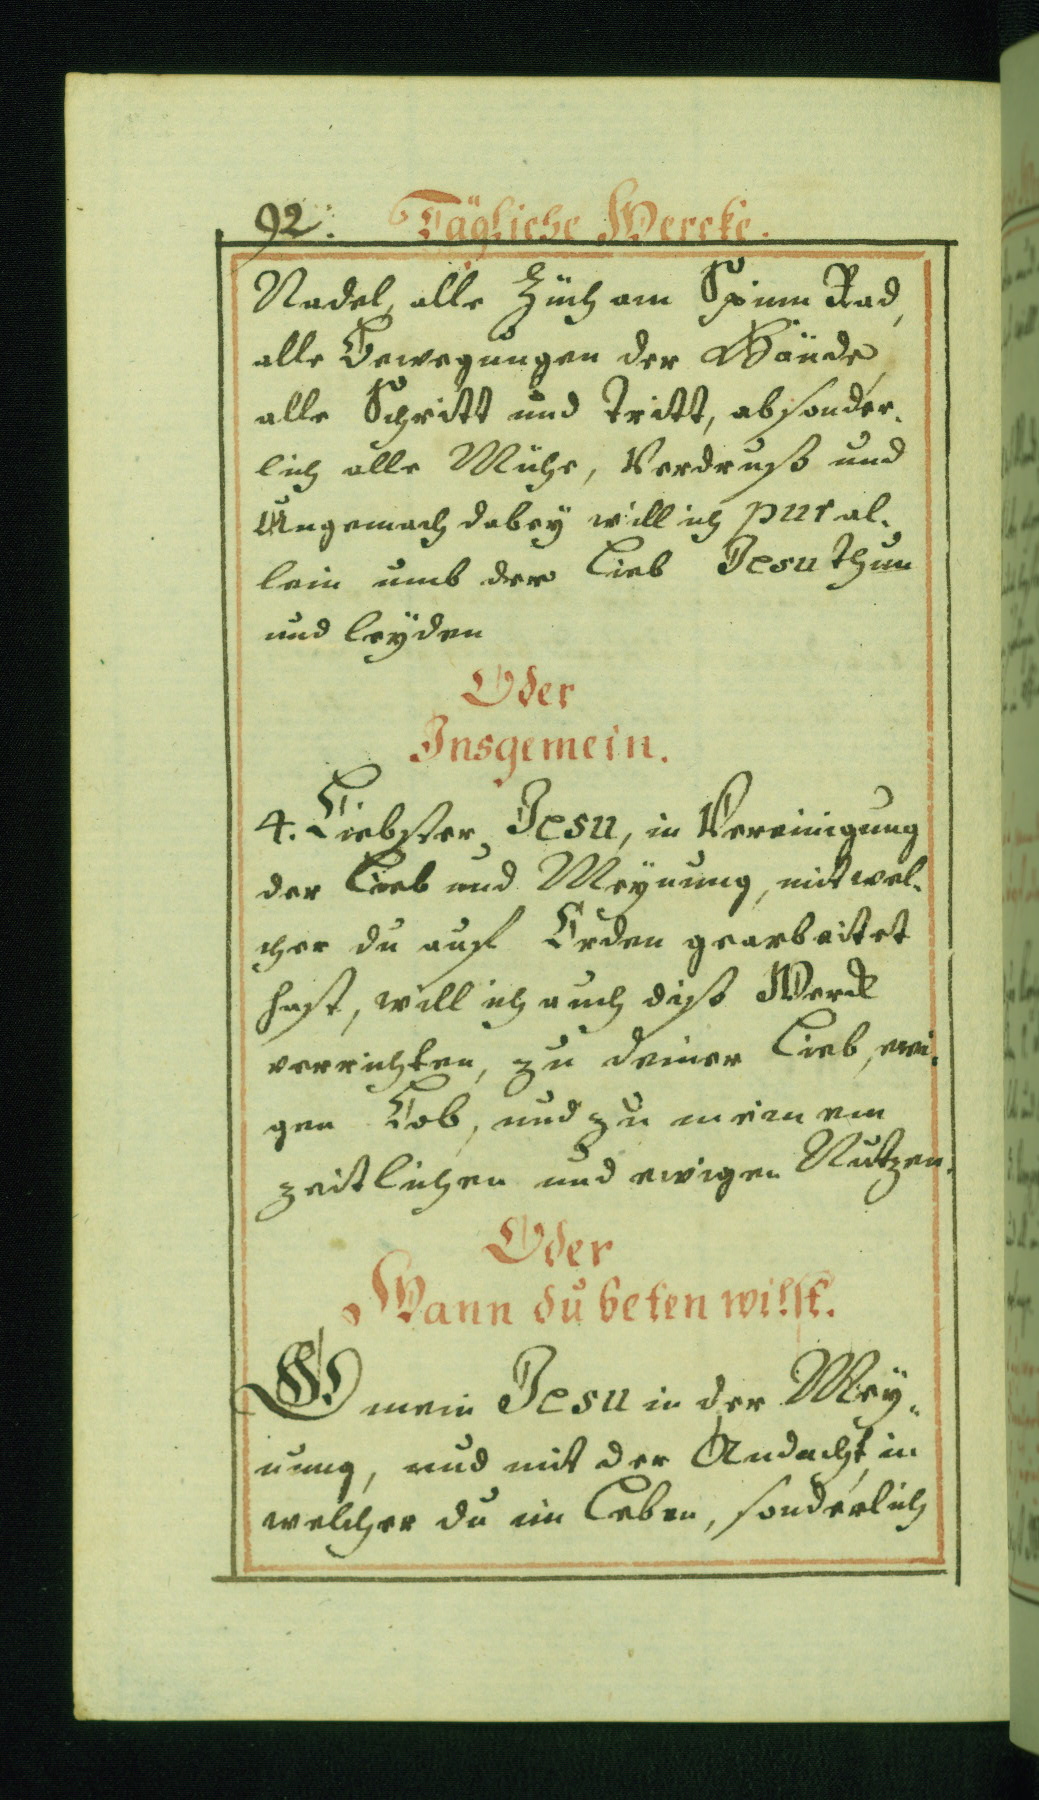 92. Tägliche Wercke.
Nadel, alle Züch am Spinn Rad,
alle Bewegungen der Hände,
alle Schritt und Tritt, absonder-
lich alle Mühe, Verdruß und
Ungemach dabey will ich pur al-
lein umb der Lieb Jesu thun
und leyden
Oder
Insgemein.
4. Liebster Jesu, in Vereinigung
der Lieb und Meynung, mit wel-
cher du auf Erden gearbeitet
hast, will ich auch diß Werck
verrichten, zu deiner Lieb, ewi-
gen Lob, und zu meinem
zeitlichen und ewigen Nutzen.
Oder
Wann du beten willst.
O mein Jesu in der Mey-
nung, und mit der Andacht, in
welcher du im Leben, sonderlich